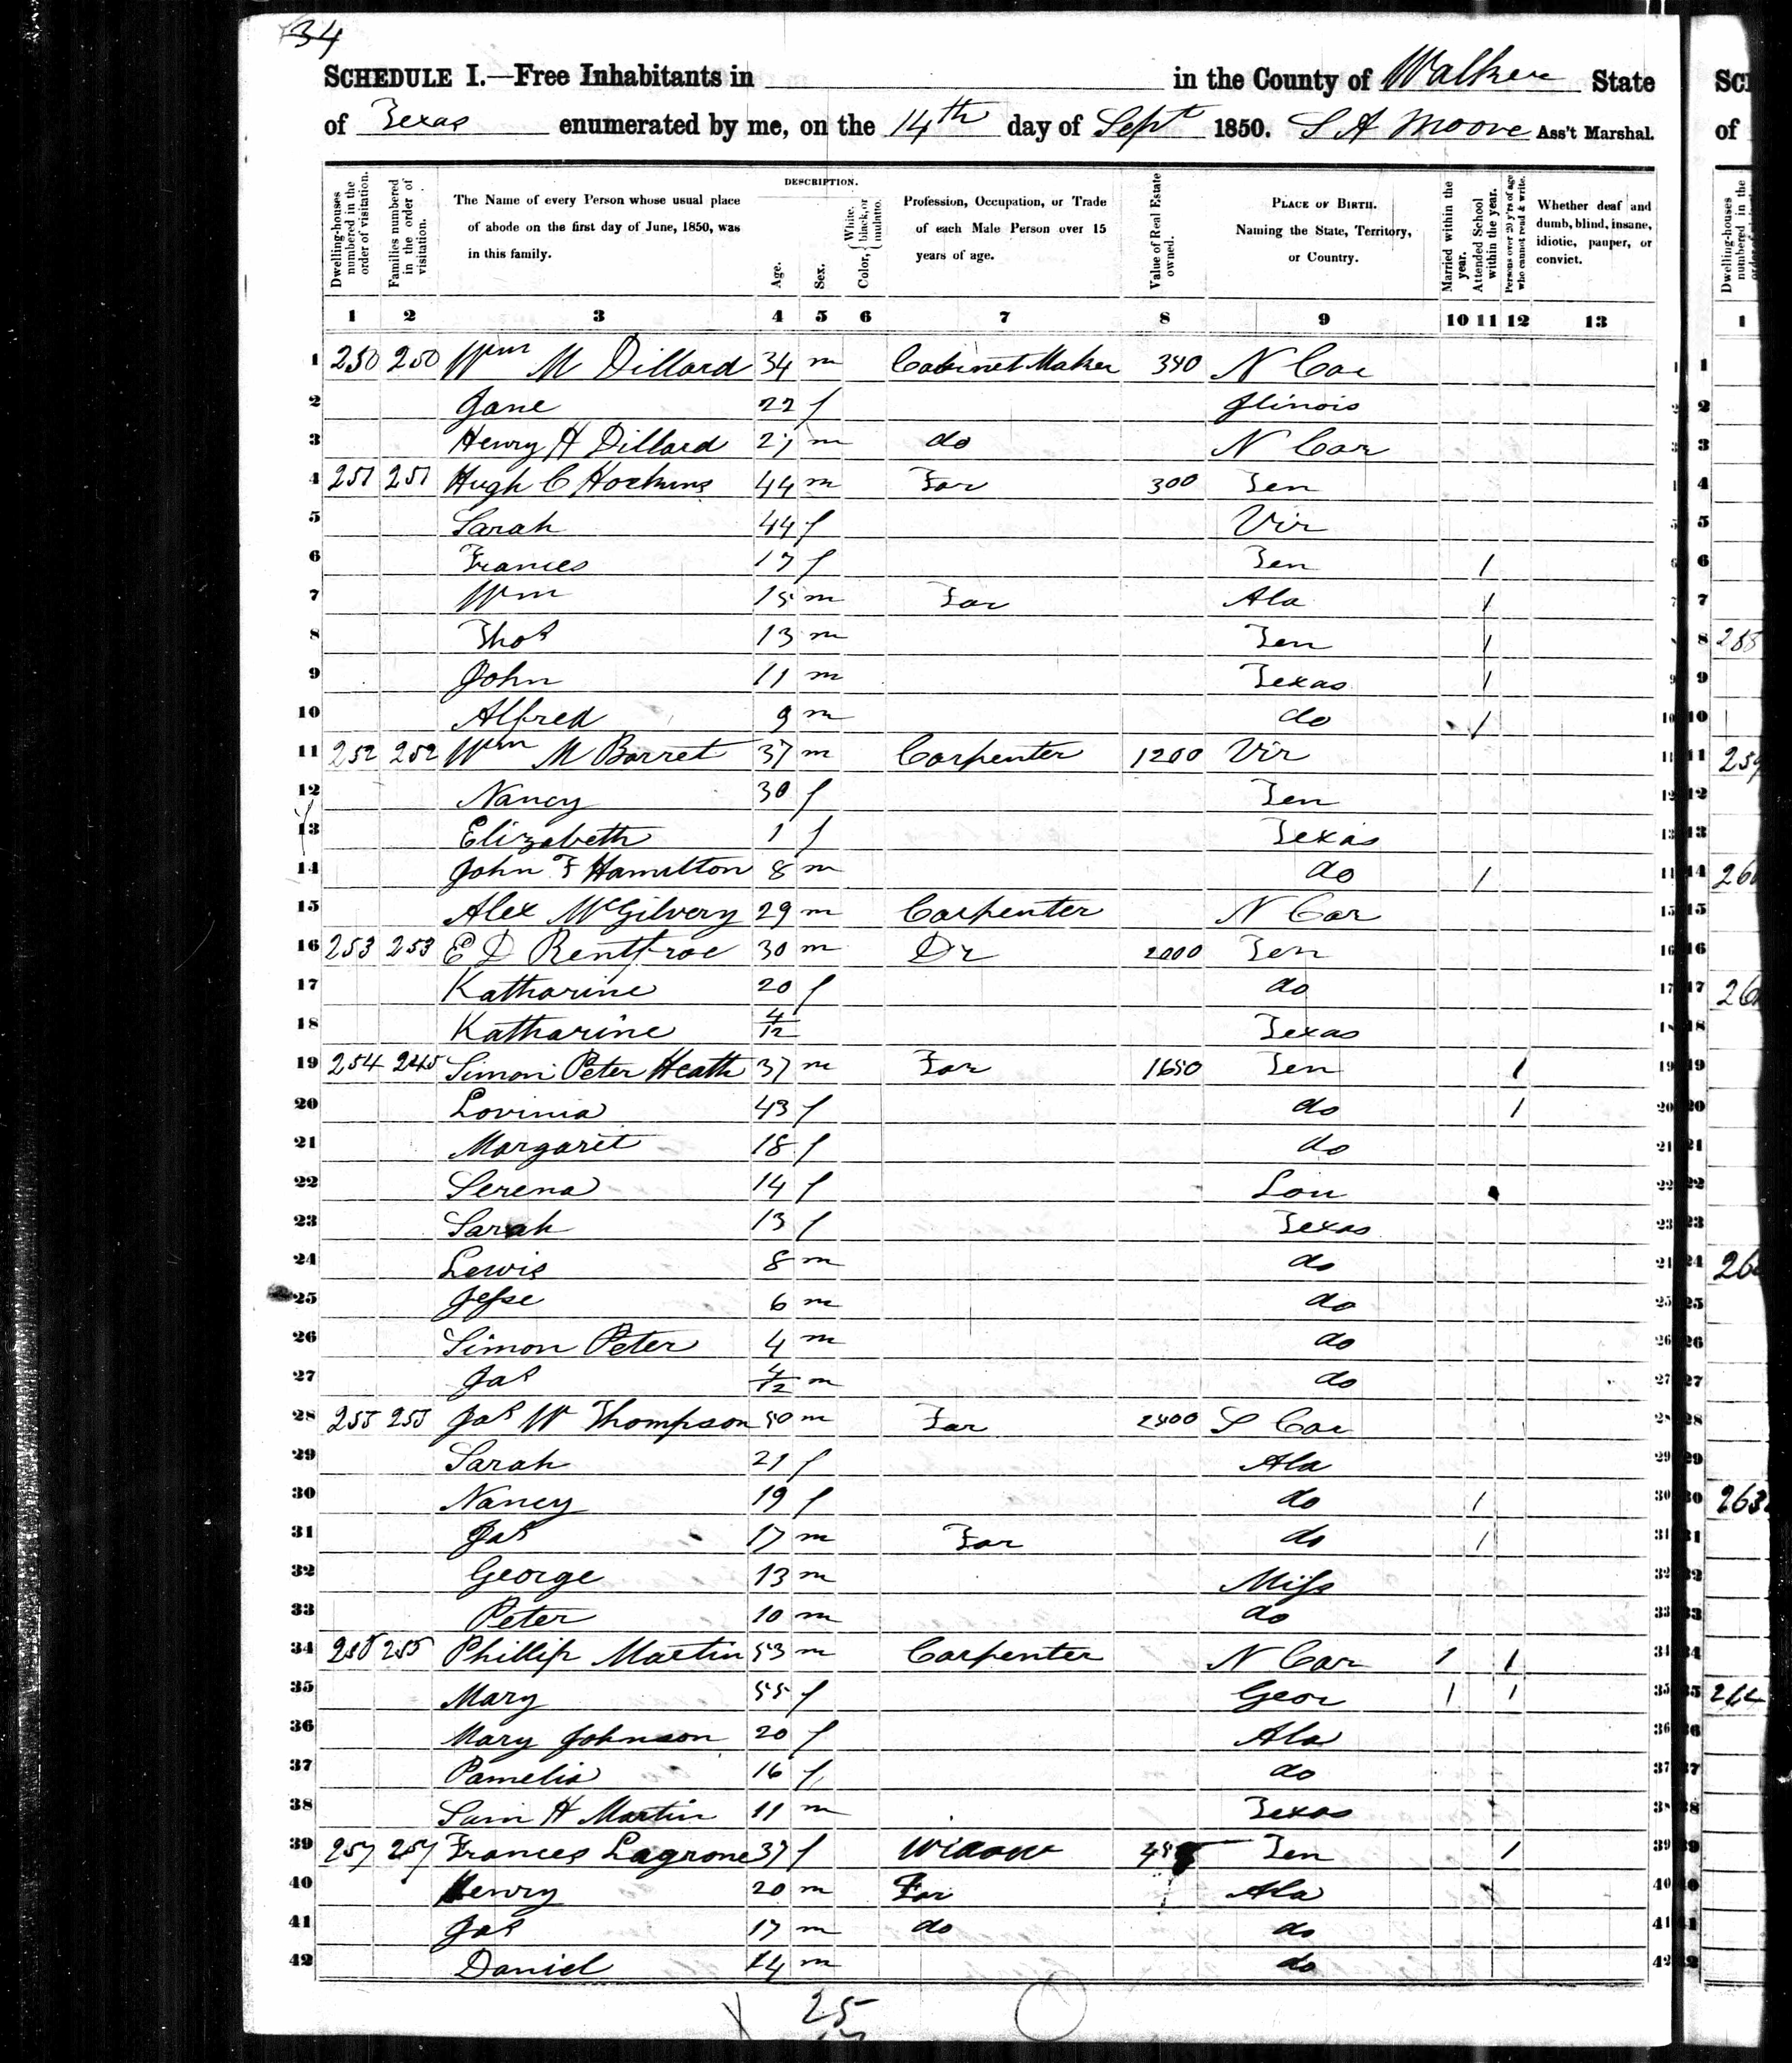 34
SCHEDULE I.—Free Inhabitants in in the County of Walker State
of Texas enumerated by me, on the 14th day of Sept 1850. S A Moore Ass't Marshal.
Dwelling-houses numbered in the order of visitation.
Families numbered in the order of visitation.
The Name of every Person whose usual place of abode on the first day of June, 1850, was in this family.
DESCRIPTION.
Age.
Sex.
Color, { White, black, or mulatto.
Profession, Occupation, or Trade of each Male Person over 15 years of age.
Value of Real Estate owned.
PLACE OF BIRTH. Naming the State, Territory, or Country.
Married within the year.
Attended School within the year.
Persons over 20 y'rs of age who cannot read & write.
Whether deaf and dumb, blind, insane, idiotic, pauper, or convict.
1 2 3 4 5 6 7 8 9 10 11 12 13
1 250 250 Wm M Dillard 34 m Cabinet Maker 340 N Car 1
2 Jane 22 f Ilinois 2
3 Henry H Dillard 27 m do N Car 3
4 251 251 Hugh C Hockins 44 m Far 300 Ten 4
5 Sarah 44 f Vir 5
6 Frances 17 f Ten / 6
7 Wm 15 m Far Ala / 7
8 Thos 13 m Ten / 8
9 John 11 m Texas / 9
10 Alfred 9 m do / 10
11 252 252 Wm M Barret 37 m Carpenter 1200 Vir 11
12 Nancy 30 f Ten 12
13 Elizabeth 1 f Texas 13
14 John F Hamilton 8 m do / 14
15 Alex McGilvery 29 m Carpenter N Car 15
16 253 253 E D Rentfroe 30 m Dr 2000 Ten 16
17 Katharine 20 f do 17
18 Katharine 4/12 Texas 18
19 254 245 Simon Peter Heath 37 m Far 1650 Ten / 19
20 Lovinia 43 f do / 20
21 Margaret 18 f do 21
22 Serena 14 f Lou 22
23 Sarah 13 f Texas 23
24 Lewis 8 m do 24
25 Jesse 6 m do 25
26 Simon Peter 4 m do 26
27 Jas 4/12 m do 27
28 255 255 Jas W Thompson 50 m Far 2400 S Car 28
29 Sarah 21 f Ala 29
30 Nancy 19 f do / 30
31 Jas 17 m Far do / 31
32 George 13 m Miss 32
33 Peter 10 m do 33
34 255 Phillip Martin 53 m Carpenter N Car 1 / 34
35 Mary 55 f Geor / / 35
36 Mary Johnson 20 f Ala 36
37 Pamelia 16 f do 37
38 Sam H Martin 11 m Texas 38
39 257 257 Frances Lagrone 37 f Widow Ten / 39
40 Henry 20 m Far Ala 40
41 Jas 17 m do do 41
42 Daniel 14 m do 42
25